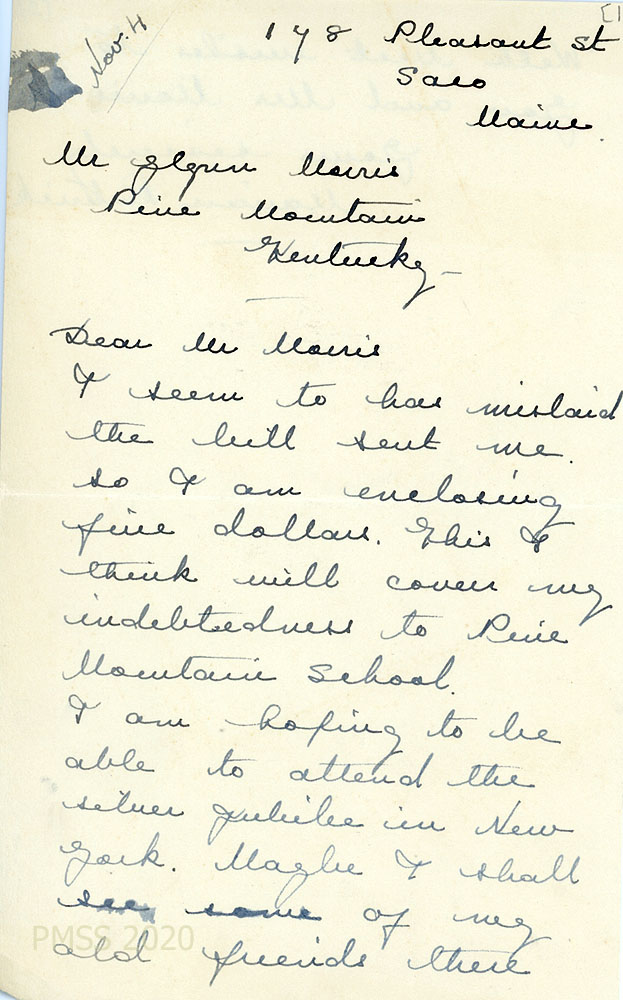 [1
Nov. 4
178 Pleasant St
Saco
Maine.
Mr Glynn Morris
Pine Mountain
Kentucky
Dear Mr Morris
I seem to has mislaid
the bill sent me.
so I am enclosing
five dollars. This I
think will cover my
indebtedness to Pine
Mountain School.
I am hoping to be
able to attend the
silver jubilee in New
York. Maybe I shall
see some of my
old friends there
PMSS 2020